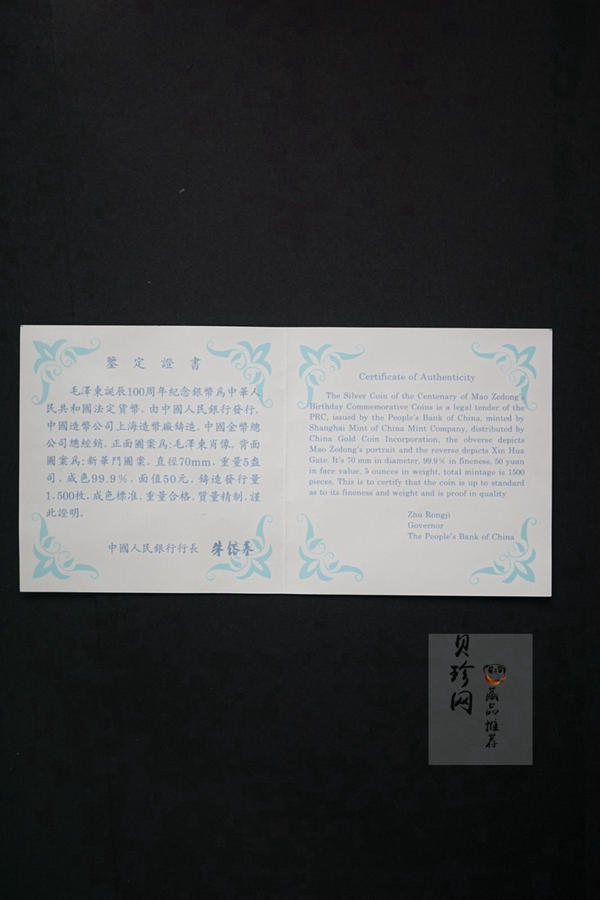 鑒定證書
毛澤東誕辰100周年紀念銀幣爲中華人
民共和國法定貨幣，由中國人民銀行發行，
中國造幣公司上海造幣廠鑄造，中國金幣總
公司總經銷。正面圖案爲：毛澤東肖像，背面
圖案爲：新華門圖案。直徑70mm，重量5盎
司，成色99.9%，面值50元，鑄造發行量
1,500枚，成色標准，重量合格，質量精制，謹
此證明。
中國人民銀行行長 朱鎔基
Certificate of Authenticity
The Silver Coin of the Centenary of Mao Zedong's
Birthday Commemorative Coins is a legal tender of the
PRC, issued by the People's Bank of China, minted by
Shanghai Mint of China Mint Company, distributed by
China Gold Coin Incorporation, the obverse depicts
Mao Zedong's portrait and the reverse depicts Xin Hua
Gate. It's 70 mm in diameter, 99.9% in fineness, 50 yuan
in fare value, 5 ounces in weight, total mintage is 1500
pieces. This is to certify that the coin is up to standard
as to its fineness and weight and is proof in quality
Zhu Rongji
Governor
The People's Bank of China
贝珍网
藏品推荐